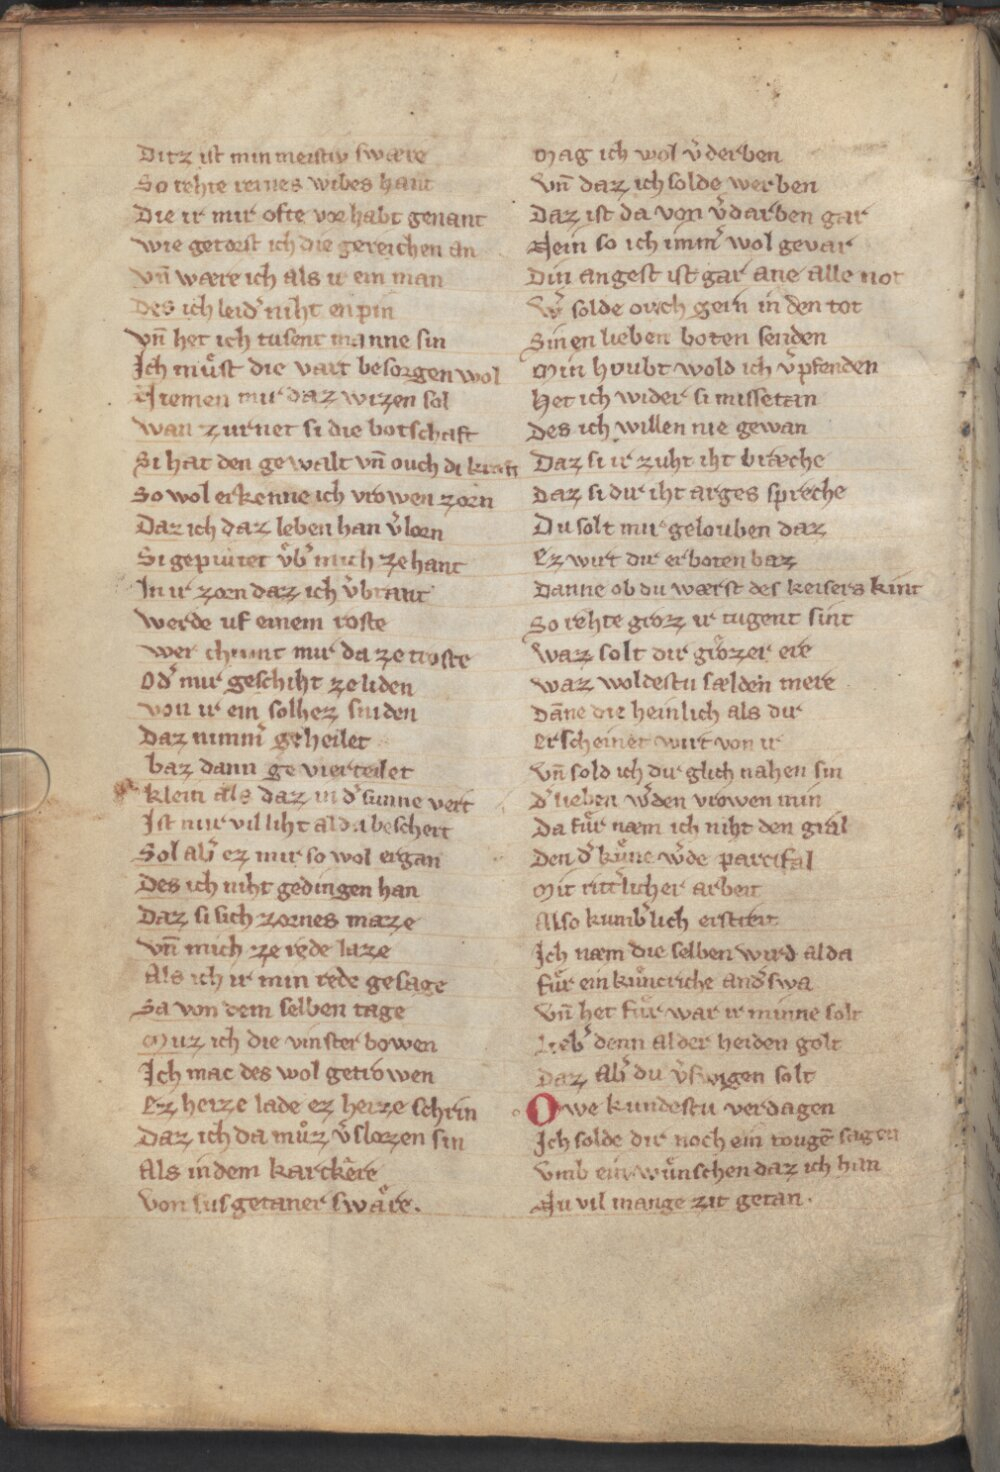 Ditz ist min meistiv swære
So rehte reines wibes hant
Die ir mir ofte vor habt genant
wie getorst ich die gereichen an
vn̄ wære ich als ir ein man
Des ich leid᾽ niht en pin
vn̄ het ich tusent manne sin
Ich muͤst die vart besorgen wol
Niemen mir daz wizen sol
wan zurnet si die botschaft
Si hat den gewalt vn̄ ouch di kraft
So wol erkenne ich vrowen zorn
Daz ich daz leben han v᾽lorn
Si gepiutet vͤb᾽ mich ze hant
In ir zorn daz ich v᾽brant
werde uf einem roste
wer chumt mir da ze troste
Od᾽ mir geschiht ze liden
von ir ein solhez sniden
Daz nimm᾽ geheilet
baz dann gevierteilet
klein als daz in d᾽ sunne vert
Ist mir vil liht alda beschert
Sol ab᾽ ez mir so wol ergan
Des ich niht gedingen han
Daz si sich zornes maze
vn̄ mich ze rede laze
als ich ir min rede gesage
Sa von dem selben tage
Muz ich die vinster bowen
Ich mac des wol getrowen
Ez herze lade ez herze schrin
Daz ich da muͦz v᾽slozen sin
Als in dem karckēre
von sus getaner swaͤre.
Mag ich wol v᾽derben
vn̄ daz ich solde werben
Daz ist da von v᾽darben gar
Nein so ich imm᾽ wol gevar
Din angest ist gar ane alle not
W᾽ solde ouch gein in den tot
Sinen lieben boten senden
Min houbt wold ich v᾽pfenden
Het ich wider si missetan
Des ich willen nie gewan
Daz si ir zuht iht bræche
Daz si dir iht arges spreche
Du solt mir gelouben daz
Ez wirt dir erboten baz
Danne ob du wærst des keisers kint
So rehte groz ir tugent sint
waz solt dir grozer ere
waz woldestu sælden mere
Dāne die heinlich als dir
erscheinet wirt von ir
vn̄ sold ich dir glich nahen sin
d᾽ lieben w᾽den vrowen min
Da fuͤr næm ich niht den gral
Den d᾽ kuͤne w᾽de parcifal
Mit ritt᾽licher arbeit
Also kumb᾽lich erstreit
Ich næm die selben wird alda
fuͤr ein kuͤncriche and᾽swa
vn̄ het fuͤr war ir minne solt
Lieb᾽ denn al der heiden golt
Daz ab᾽ du v᾽swigen solt
Owe kundestu verdagen
Ich solde dir noch ein tougē sagen
vmb ein wuͤnschen daz ich han
Nu vil mange zit getan.